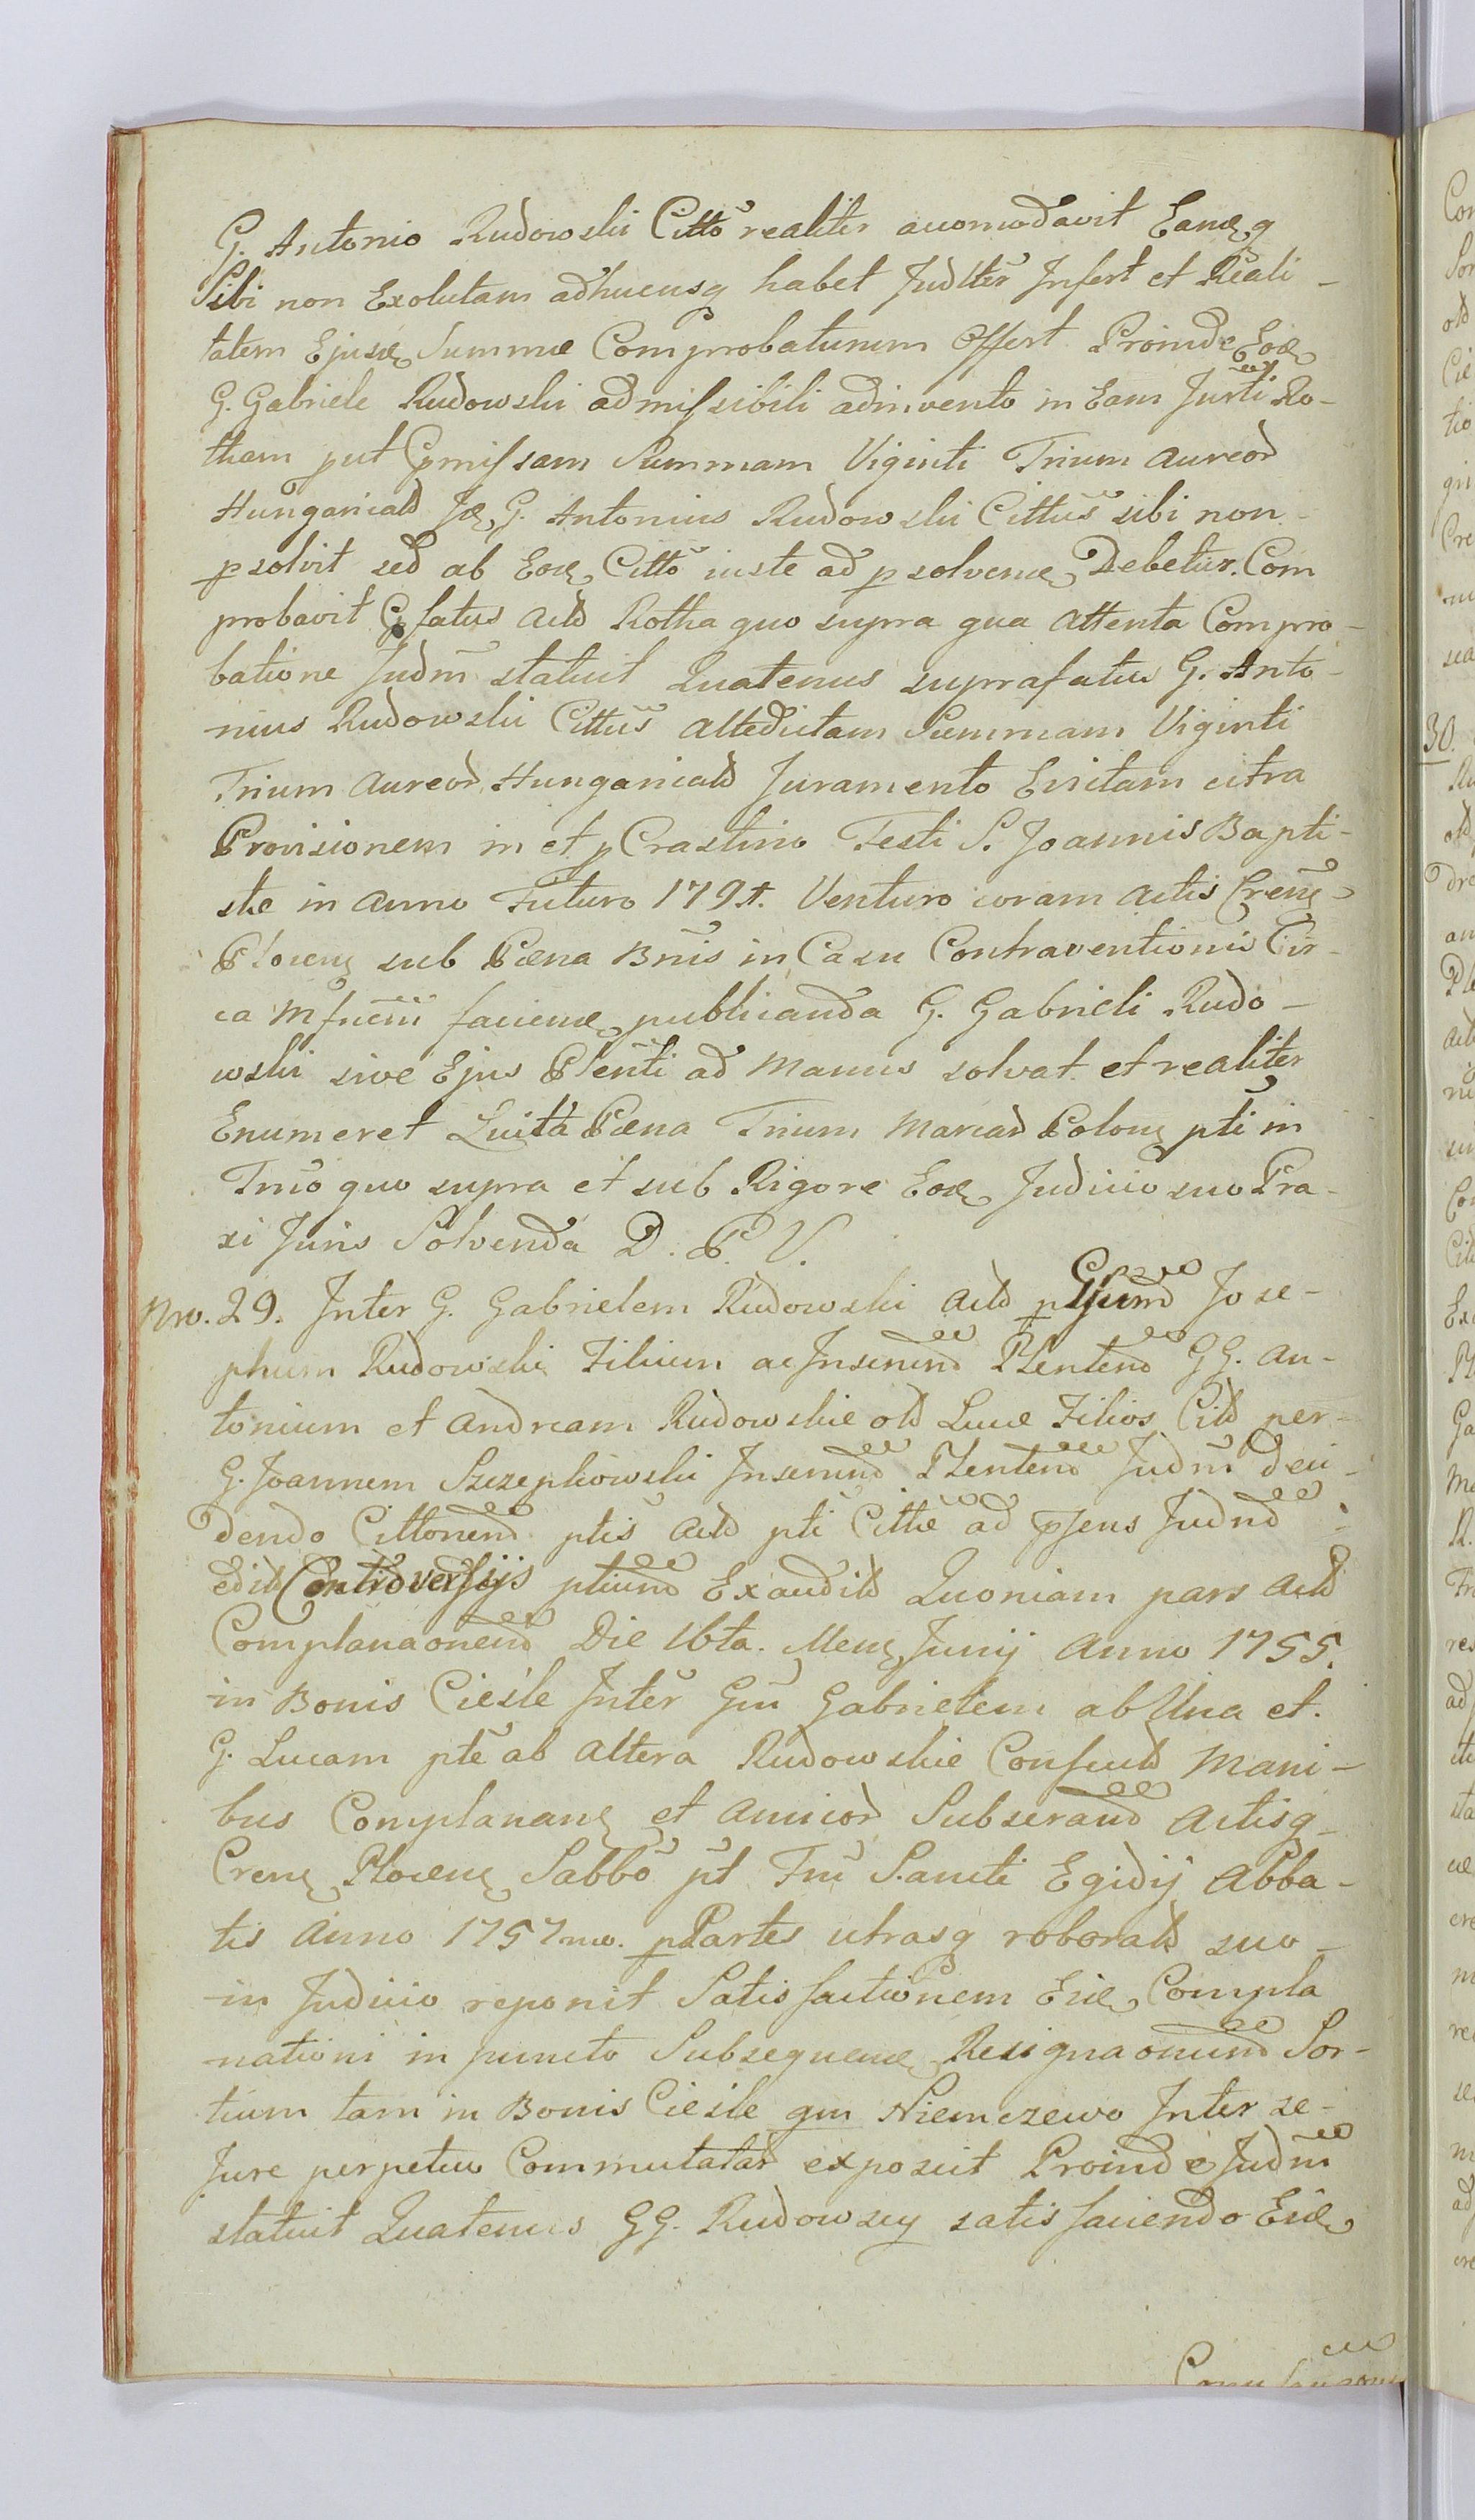 G. Antonio Rudowski Citto realiter accomodavit Eamq
Sibi non Exolutam adhucusq habet Judlter Infert et Reali-
tatem Ejusd Summæ Comprobaturum Offert Proinde Eod
G. Gabriele Rudowski admissibili adinvento in Eam Jurti Ro-
tham put Pmissam Summam Viginti Trium Aureor
Hungarical Id G. Antonius Rudowski Cittus sibi non
psolvit sed ab Eod Citto iuste ad psolvend Debetur. Com
probavit Pfatus Act Rotha quo supra qua Attenta Compro-
batione Judm statuit Quatenus suprafatus G. Anto-
nius Rudowski Cittus Altedictam Summam Viginti
Trium Aureor Hungarical Juramento Evictam citra
Provisionem in et p Crastino Festi S. Joannis Bapti-
stæ in Anno Futuro 1791. Venturo coram Actis Cren
Plocen sub Pæna Bnis in Casu Contraventionis Cir-
ca Mfnem faciend publicanda G. Gabrieli Rudo-
wski sive Ejus Plenti ad Manus solvat et realiter
Enumeret Luita Pæna Trium Marcar Polon pti in
Tmo quo supra et sub Rigore Eod Judicio suo Pra-
xi Juris Solvenda D. P. V.
Nro. 29. Inter G. Gabrielem Rudowski Act p Gsum Jose-
phum Rudowski Filium ac Insernem Plentem GG. An-
tonium et Andream Rudowskie ol Lucæ Filios Cit per
G. Joannem Szczepkowski Insernem Plentem Judm deci-
dendo Cittonem ptis Act pti Cittæ ad psens Judm
edit Controversijs ptium Exaudit Quoniam pars Act
Complanaonem Die 16ta. Mens Junij Anno 1755.
in Bonis Cieśle Inter Gm Gabrielem ab Una et.
G. Lucam pte ab Altera Rudowskie Confect Mani-
bus Complanan et Amicor Subscrant Actisq
Cren Plocen Sabbo pt Fm Sancti Egidij Abba-
tis Anno 1757mo. p Partes utrasq roborat suo
in Judicio reponit Satisfactionem Eid Compla
nationi in puncto Subsequend Resignaonum Sor-
tium tam in Bonis Cieśle qm Niemczewo Inter se
Jure perpetuo Commutatar exposcit Proinde Judm
statuit Quatenus GG. Rudowscy satisfaciendo Eid